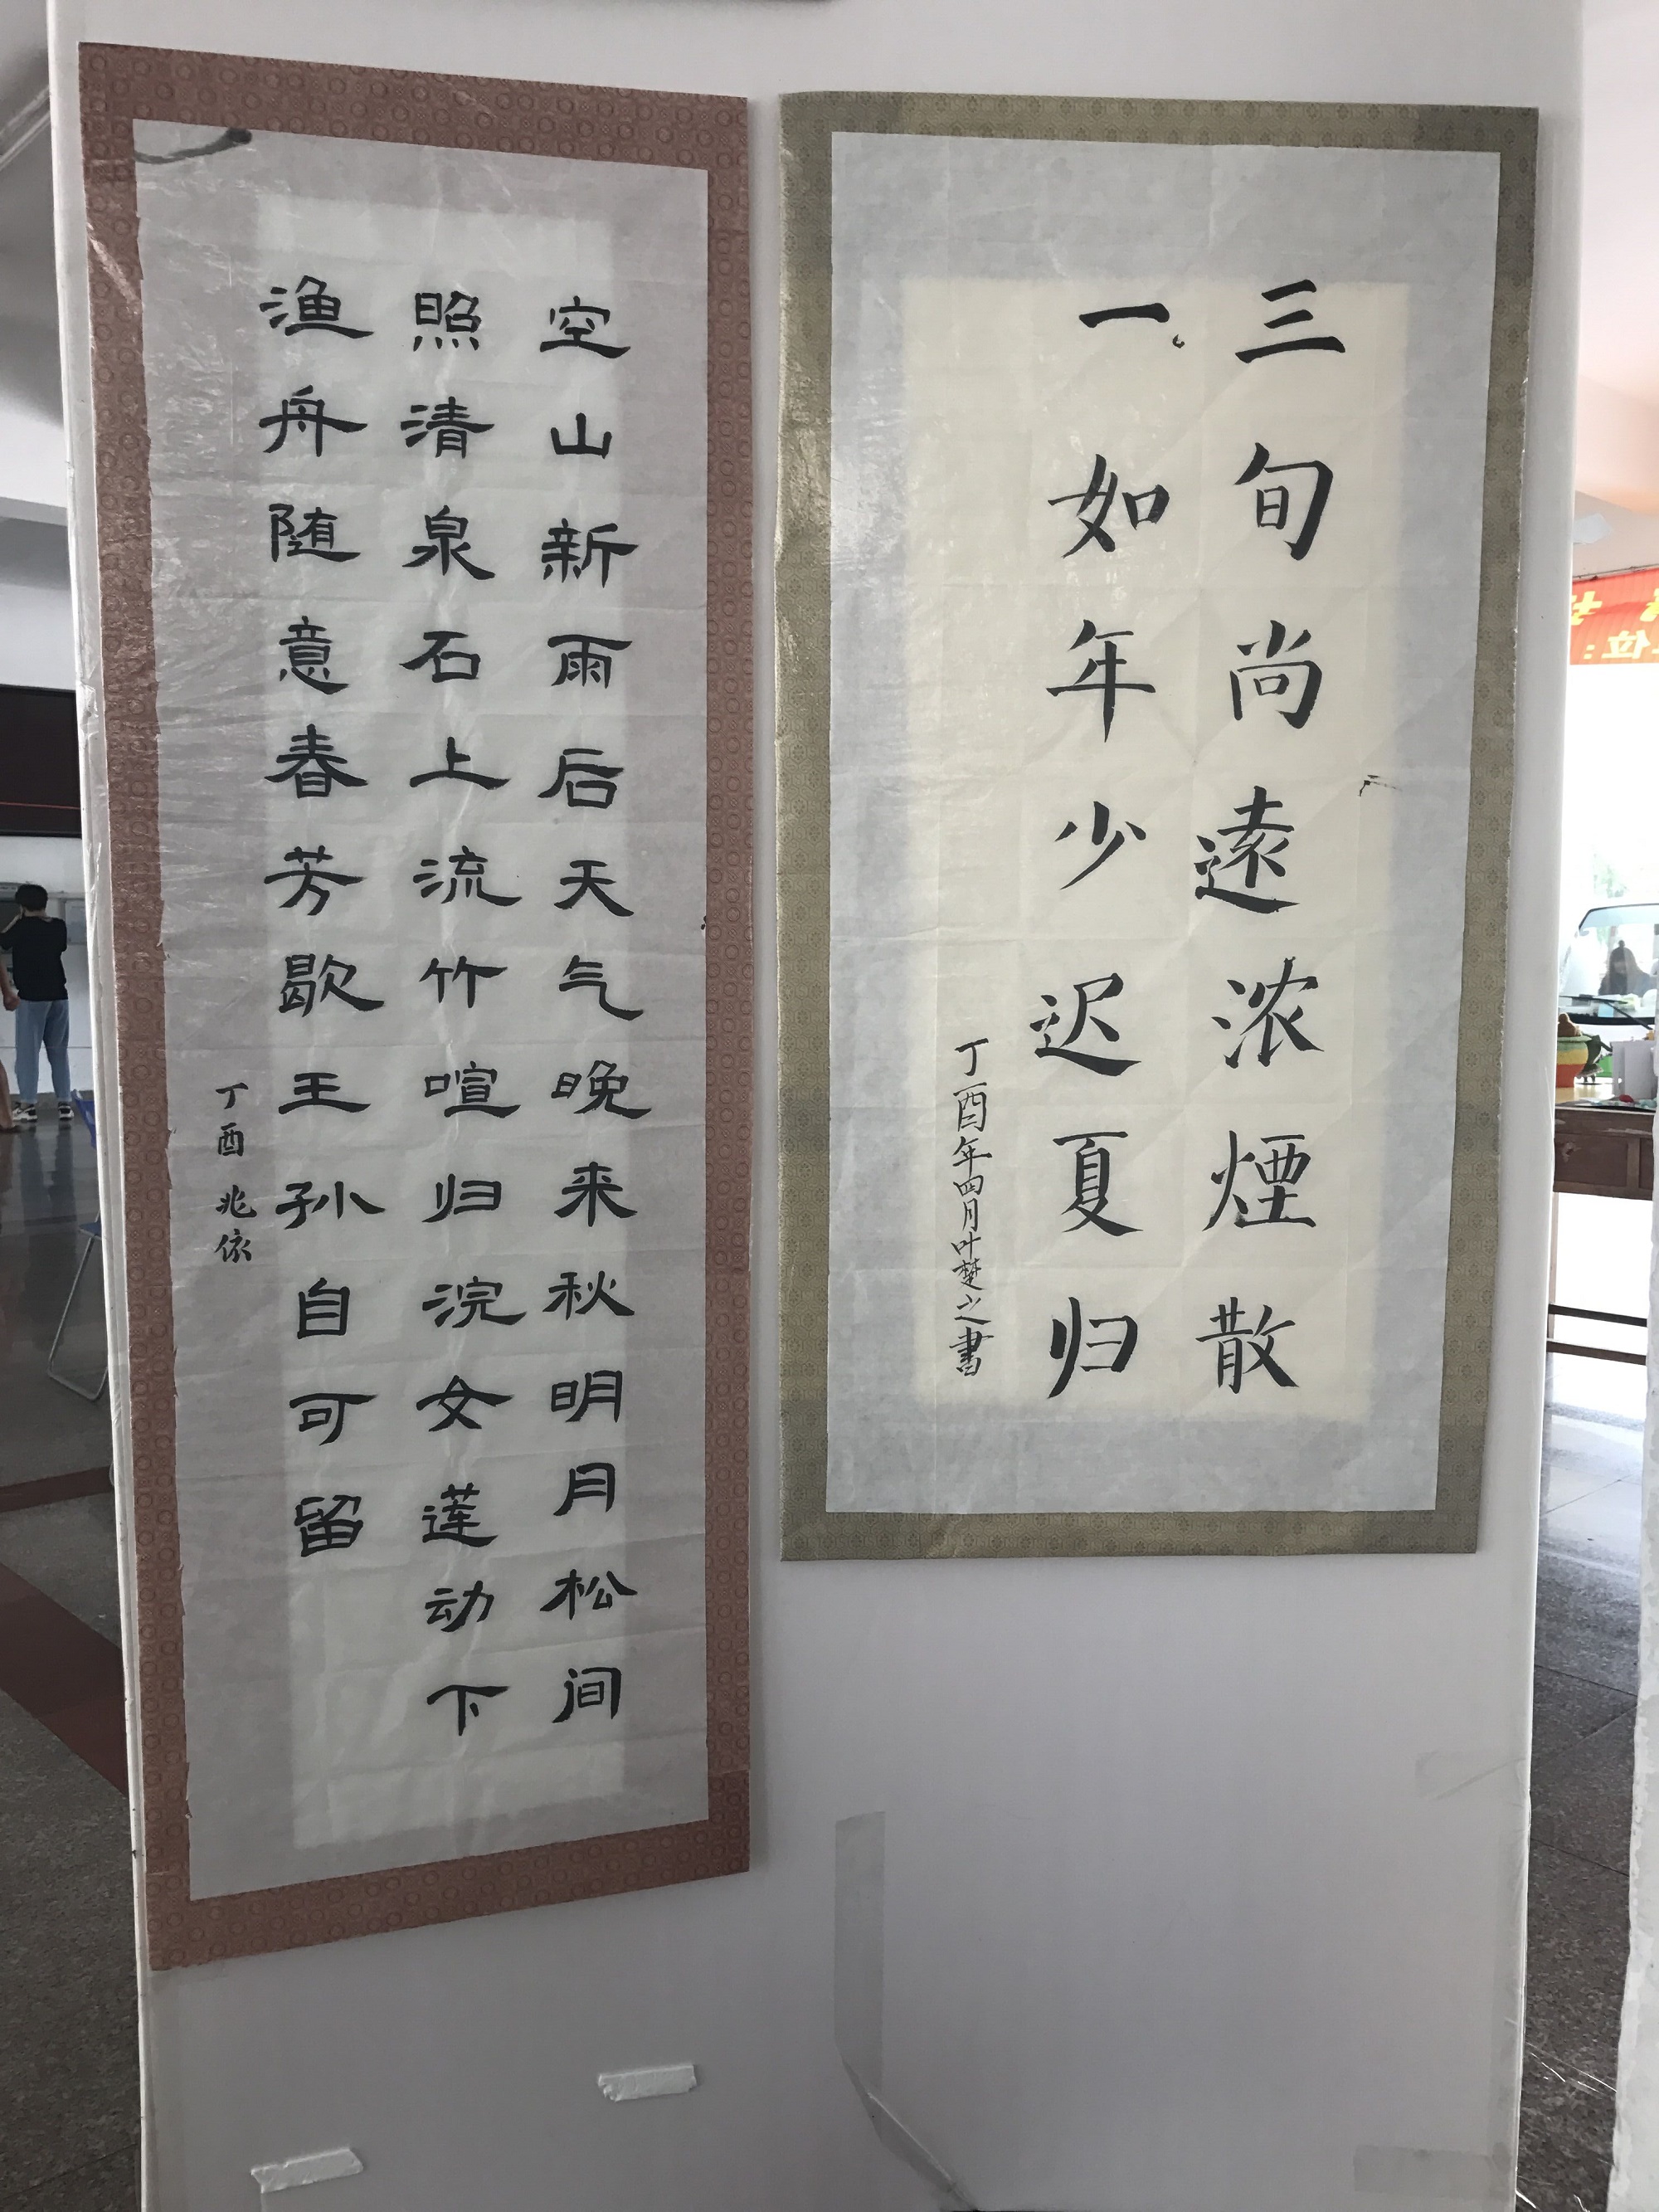 三旬尚遠浓煙散
一如年少迟夏归
丁酉年四月叶楚之書
空山新雨后天气晚来秋明月松间
照清泉石上流竹喧归浣女莲动下
渔舟随意春芳歇王孙自可留
丁酉 兆依